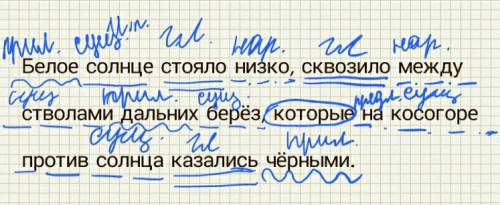 И.п.
прил. сущ. гл. нар. гл нар.
Белое солнце стояло низко, сквозило между
сущ прил. сущ. предл. сущ
стволами дальних берёз, которые на косогоре
сущ. гл прил.
против солнца казались чёрными.